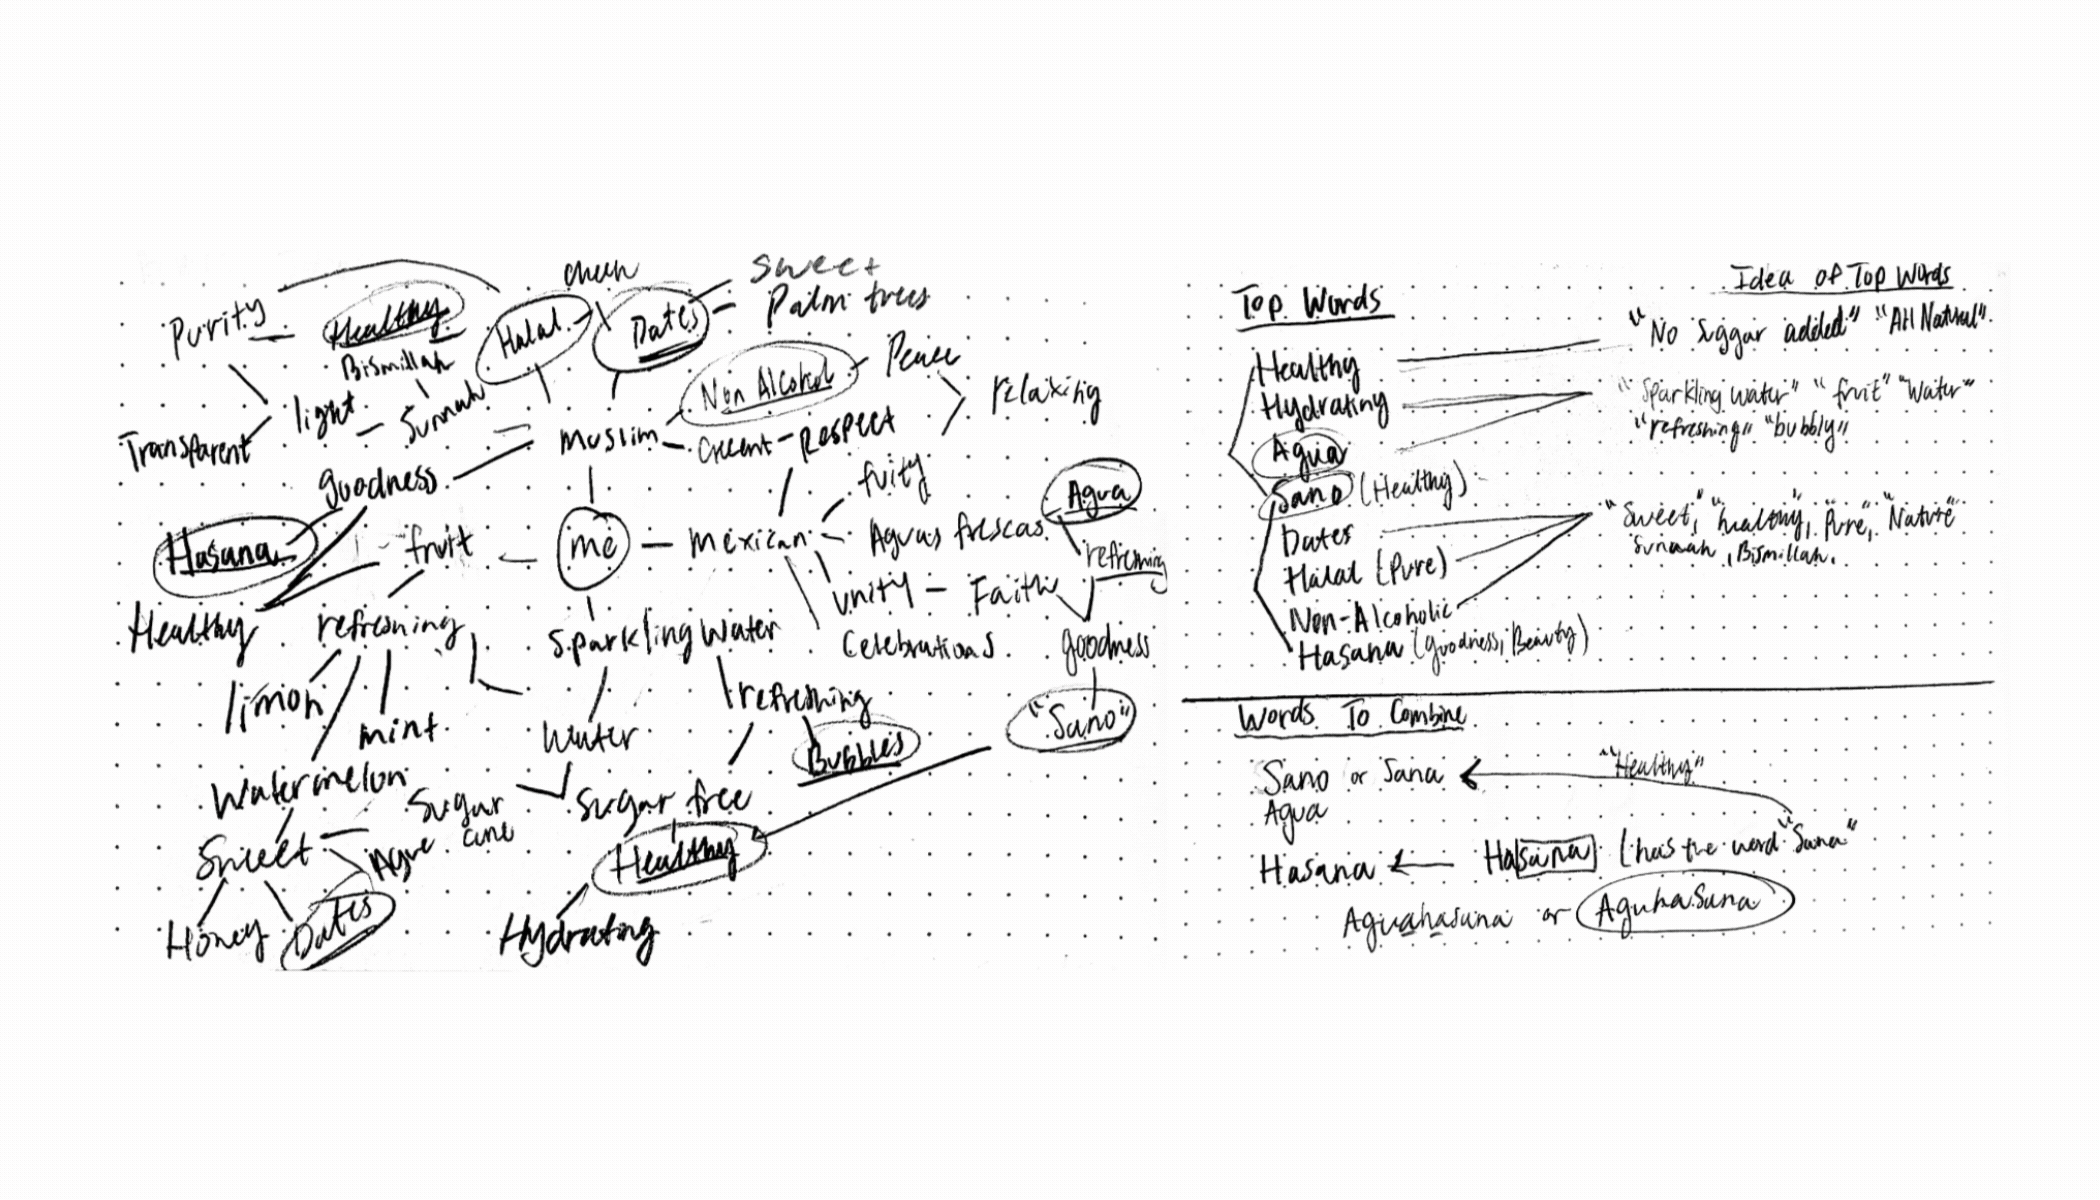 cheen
Sweet
Palm trees
Purity
Healthy
Halal
Dates
Bismillah
Non Alcohol
Peace
relaxing
light
Sunnah
Transparent
muslim
Crecent
Respect
goodness
fruity
Agua
Hasana
fruit
me
mexican
Aguas frescas
refreshing
unity
Faith
Healthy
refreshing
Sparkling Water
Celebrations
goodness
limon
mint
Water
refreshing
"Sano"
Bubbles
Watermelon
Sugar cane
Sugar free
Sweet
Agve
Healthy
Honey
Dates
Hydrating
Top Words
Idea of Top Words
Healthy
"No Suggar added" "All Natural"
Hydrating
"Sparkling Water" "fruit" "Water"
"refreshing" "bubbly"
Agua
Sano (Healthy)
Dates
"Sweet," "healthy, Pure," "Nature"
Sunnah, Bismillah.
Halal (Pure)
Non-Alcoholic
Hasana (goodness, Beauty)
Words To Combine
Sano or Sana
"Healthy"
Agua
Hasana
Hasana (has the word "Sana"
Aguahasana or AguhaSana